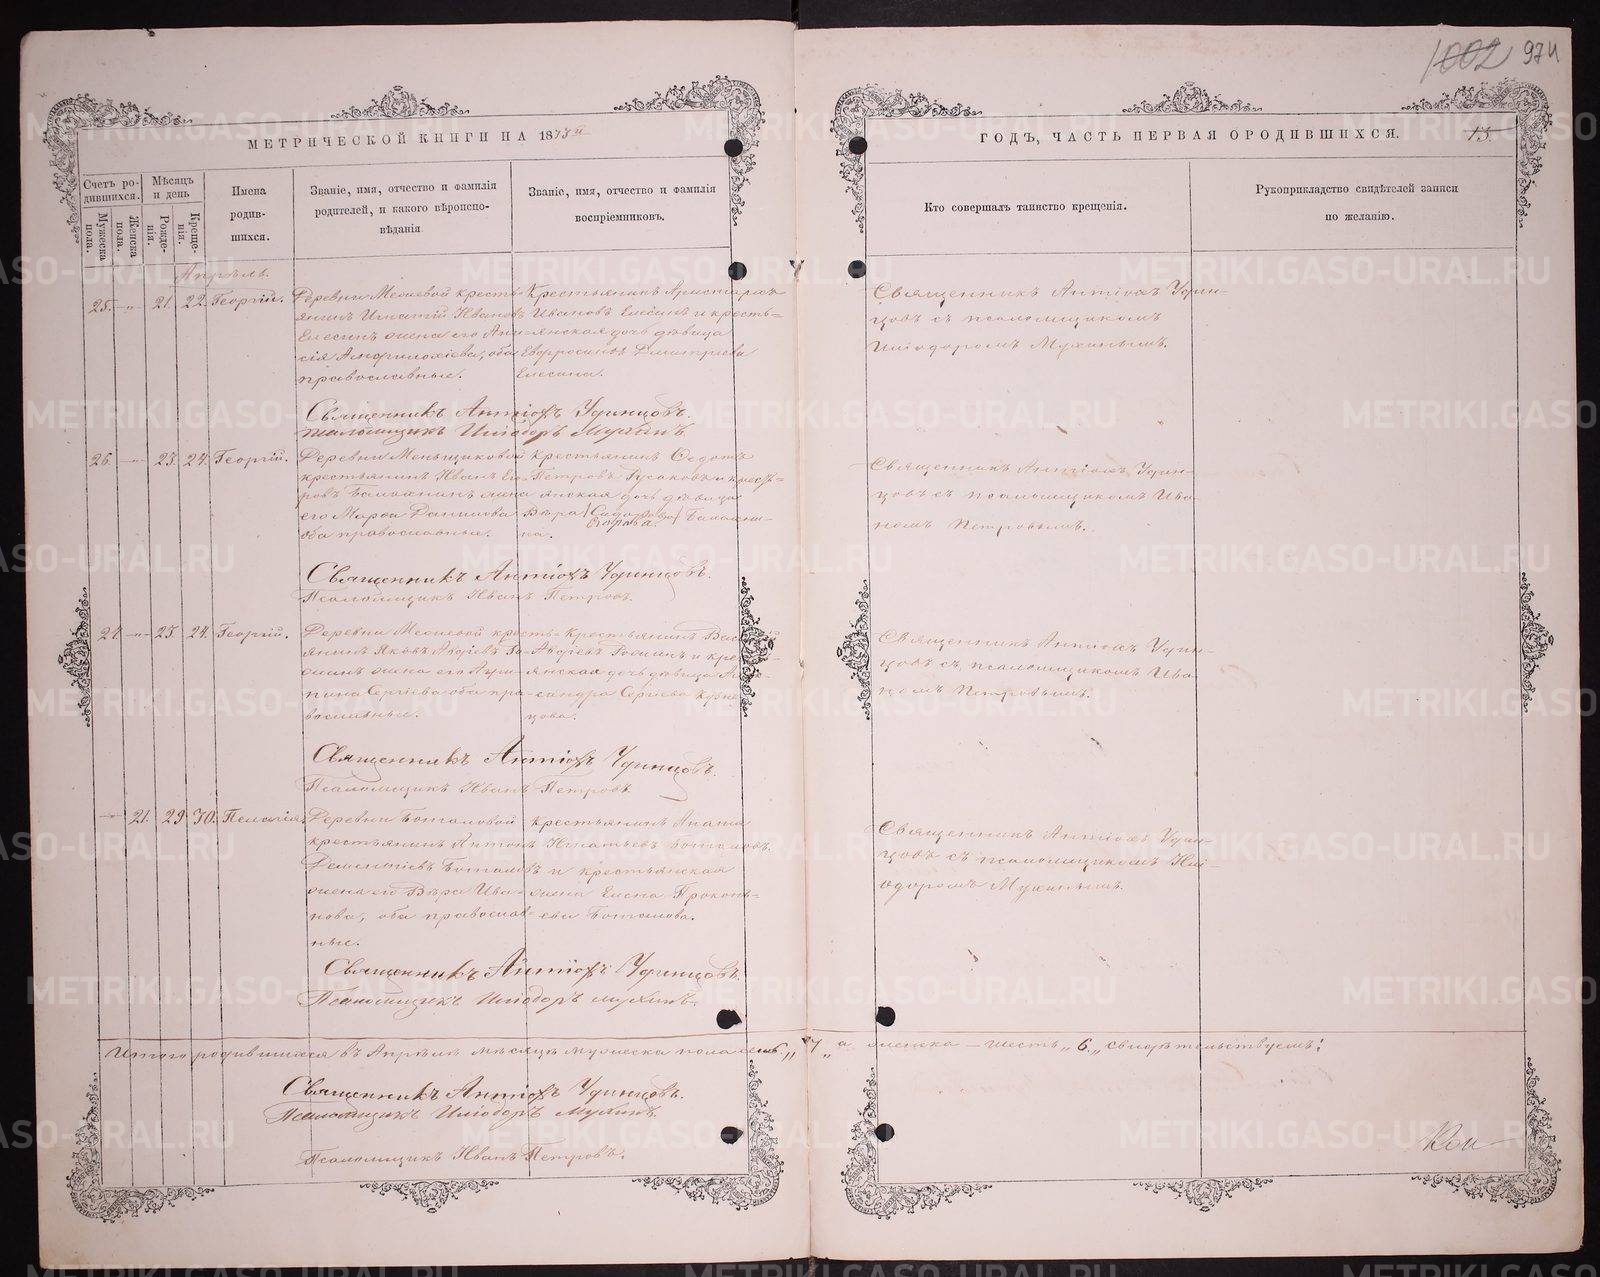 1002 974
МЕТРИЧЕСКОЙ КНИГИ НА 1873й
ГОДЪ, ЧАСТЬ ПЕРВАЯ ОРОДИВШИХСЯ.
13.
Счетъ ро-
дившихся.
Мужеска
пола.
Женска
пола.
Мѣсяцъ
и день
Рожде-
нія.
Креще-
нія.
Имена
родив-
шихся.
Званіе, имя, отчество и фамилія
родителей, и какого вѣроиспо-
вѣданія.
Званіе, имя, отчество и фамилія
воспріемниковъ.
Кто совершалъ таинство крещенія.
Рукоприкладство свидѣтелей записи
по желанію.
Апрѣль.
25. -"- 21. 22. Георгій.
Деревни кресть-
янинъ Игнатій Ивановъ
Елесинъ жена его
сія Амфилохіева, оба
православные.
Крестьянинъ
Ивановъ Елесинъ и кресть=
янская дочь дѣвица
Евфросинія Димитріева
Елесина.
Священникъ Антіохъ Удин-
цовъ съ псаломщикомъ
Иліодоромъ Мухинымъ.
Священникъ Антіохъ Удинцовъ.
Псаломщикъ Иліодоръ Мухинъ.
26. -"- 23. 24. Георгій.
Деревни Меньщиковой
крестьянинъ Иванъ
жена
его Марѳа Данилова
оба православные.
Крестьянинъ Ѳедотъ
Петровъ Русаковъ и крест=
янская дочь дѣвица
Вѣра
на.
Священникъ Антіохъ Удин-
цовъ съ псаломщикомъ Ива-
номъ Петровымъ.
Священникъ Антіохъ Удинцовъ.
Псаломщикъ Иванъ Петровъ.
27 -"- 23. 24. Георгій.
Деревни кресть-
янинъ Яковъ
жена его Агри-
пина Сергіева оба пра-
вославные.
Крестьянинъ
и крес
янская дочь дѣвица
сандра Сергіева Кузне
цова.
Священникъ Антіохъ Удин-
цовъ съ псаломщикомъ Ива
номъ Петровымъ.
Священникъ Антіохъ Удинцовъ.
Псаломщикъ Иванъ Петровъ
-"- 21. 29 30. Пелагія.
Деревни Боталовой
крестьянинъ Антонъ
Дементіевъ Боталовъ
жена его Вѣра Ива-
нова, оба православ-
ные.
крестьянинъ
Игнатьевъ Боталовъ.
и крестьянская
жена Елена Прокопь=
ева Боталова.
Священникъ Антіохъ Удин-
цовъ съ псаломщикомъ Илі
одоромъ Мухинымъ.
Священникъ Антіохъ Удинцовъ.
Псаломщикъ Иліодоръ Мухинъ.
Итого родившихся въ Апрѣлѣ мѣсяцѣ мужеска пола семь „7„ а женска – шесть „6„ свидѣтельствуемъ:
Священникъ Антіохъ Удинцовъ.
Псаломщикъ Иліодоръ Мухинъ.
Псаломщикъ Иванъ Петровъ.
METRIKI.GASO-URAL.RU